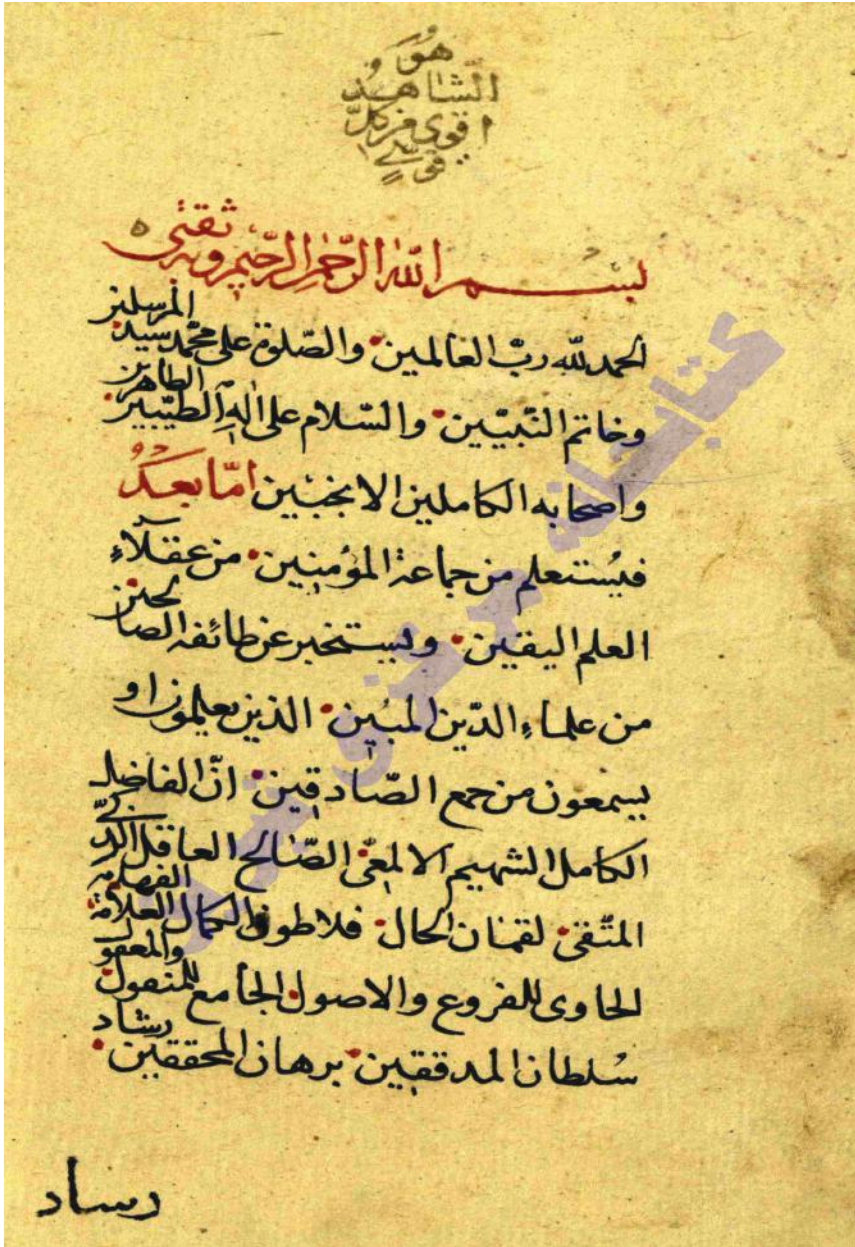 هُوَ
الشّاهدُ
اقوى من كلّ
قوىّ
بسم الله الرّحمن الرّحيم وبه ثقتى
الحمد لله ربّ العالمين والصّلوة على محمّد سيد المرسلين
وخاتم النّبيّين والسّلام على اله الطيّبين الطاهرين
واصحابه الكاملين الانجبين امّا بعدُ
فيُستعلم من جماعة المؤمنين من عقلاءِ
العلم اليقين ويستخبر عن طائفه الصالحين
من علماءِ الدّين المبين الذين يعلمون او
يسمعون من جمع الصّادقين انّ الفاضل
الكامل الشهيم الالمعىّ الصّالح العاقل الزكىّ
المتّقى لقمان الحال فلاطون الكمال العلّامة الفهامه
الحاوى للفروع والاصول الجامع للمنقول والمعقول
سُلطان المدققين برهان المحققين رشاد
رساد
كتابخانه